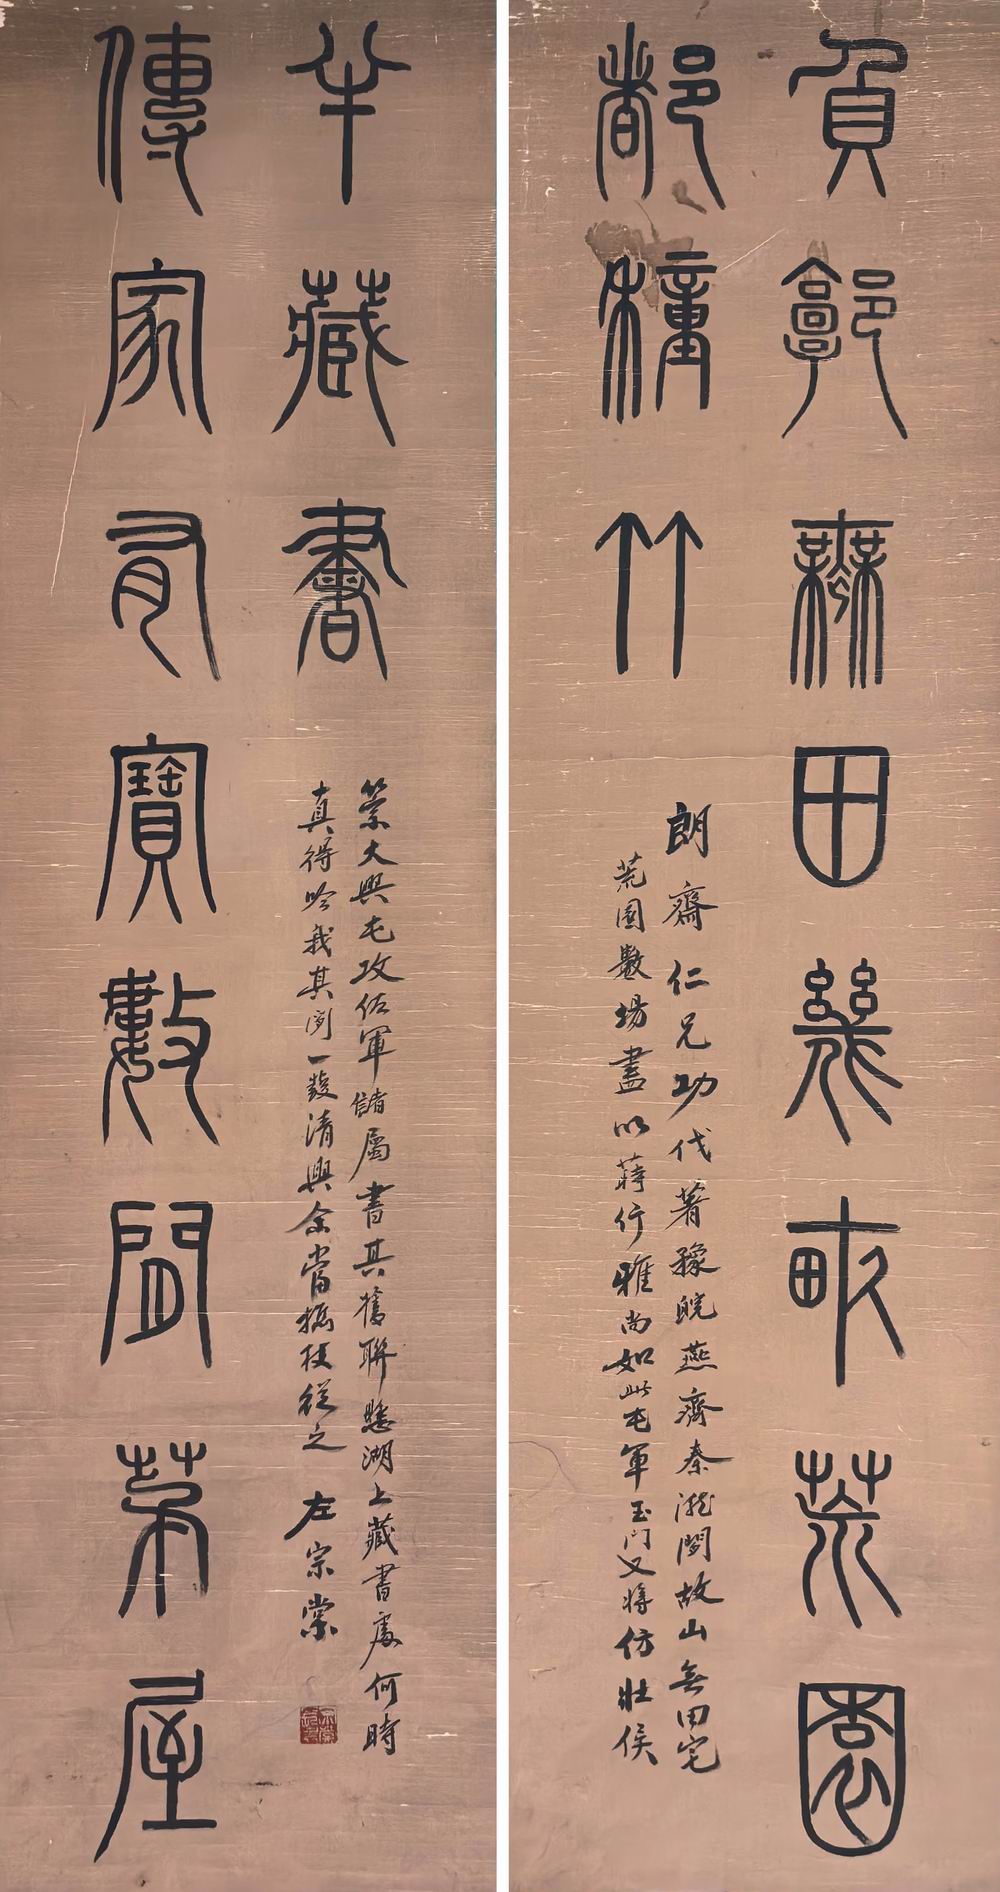 負郭無田幾畝荒園
都種竹
朗齋仁兄功伐著豫皖燕齊秦隴間故山無田宅
荒園數場盡以蒔竹雅尚如此屯軍玉門又將仿壯侯
傳家有寶數間茅屋
半藏書
策大興屯政佐軍儲屬書其舊聯懸湖上藏書處何時
真得吟我其間一發清興余當攜杖從之 左宗棠